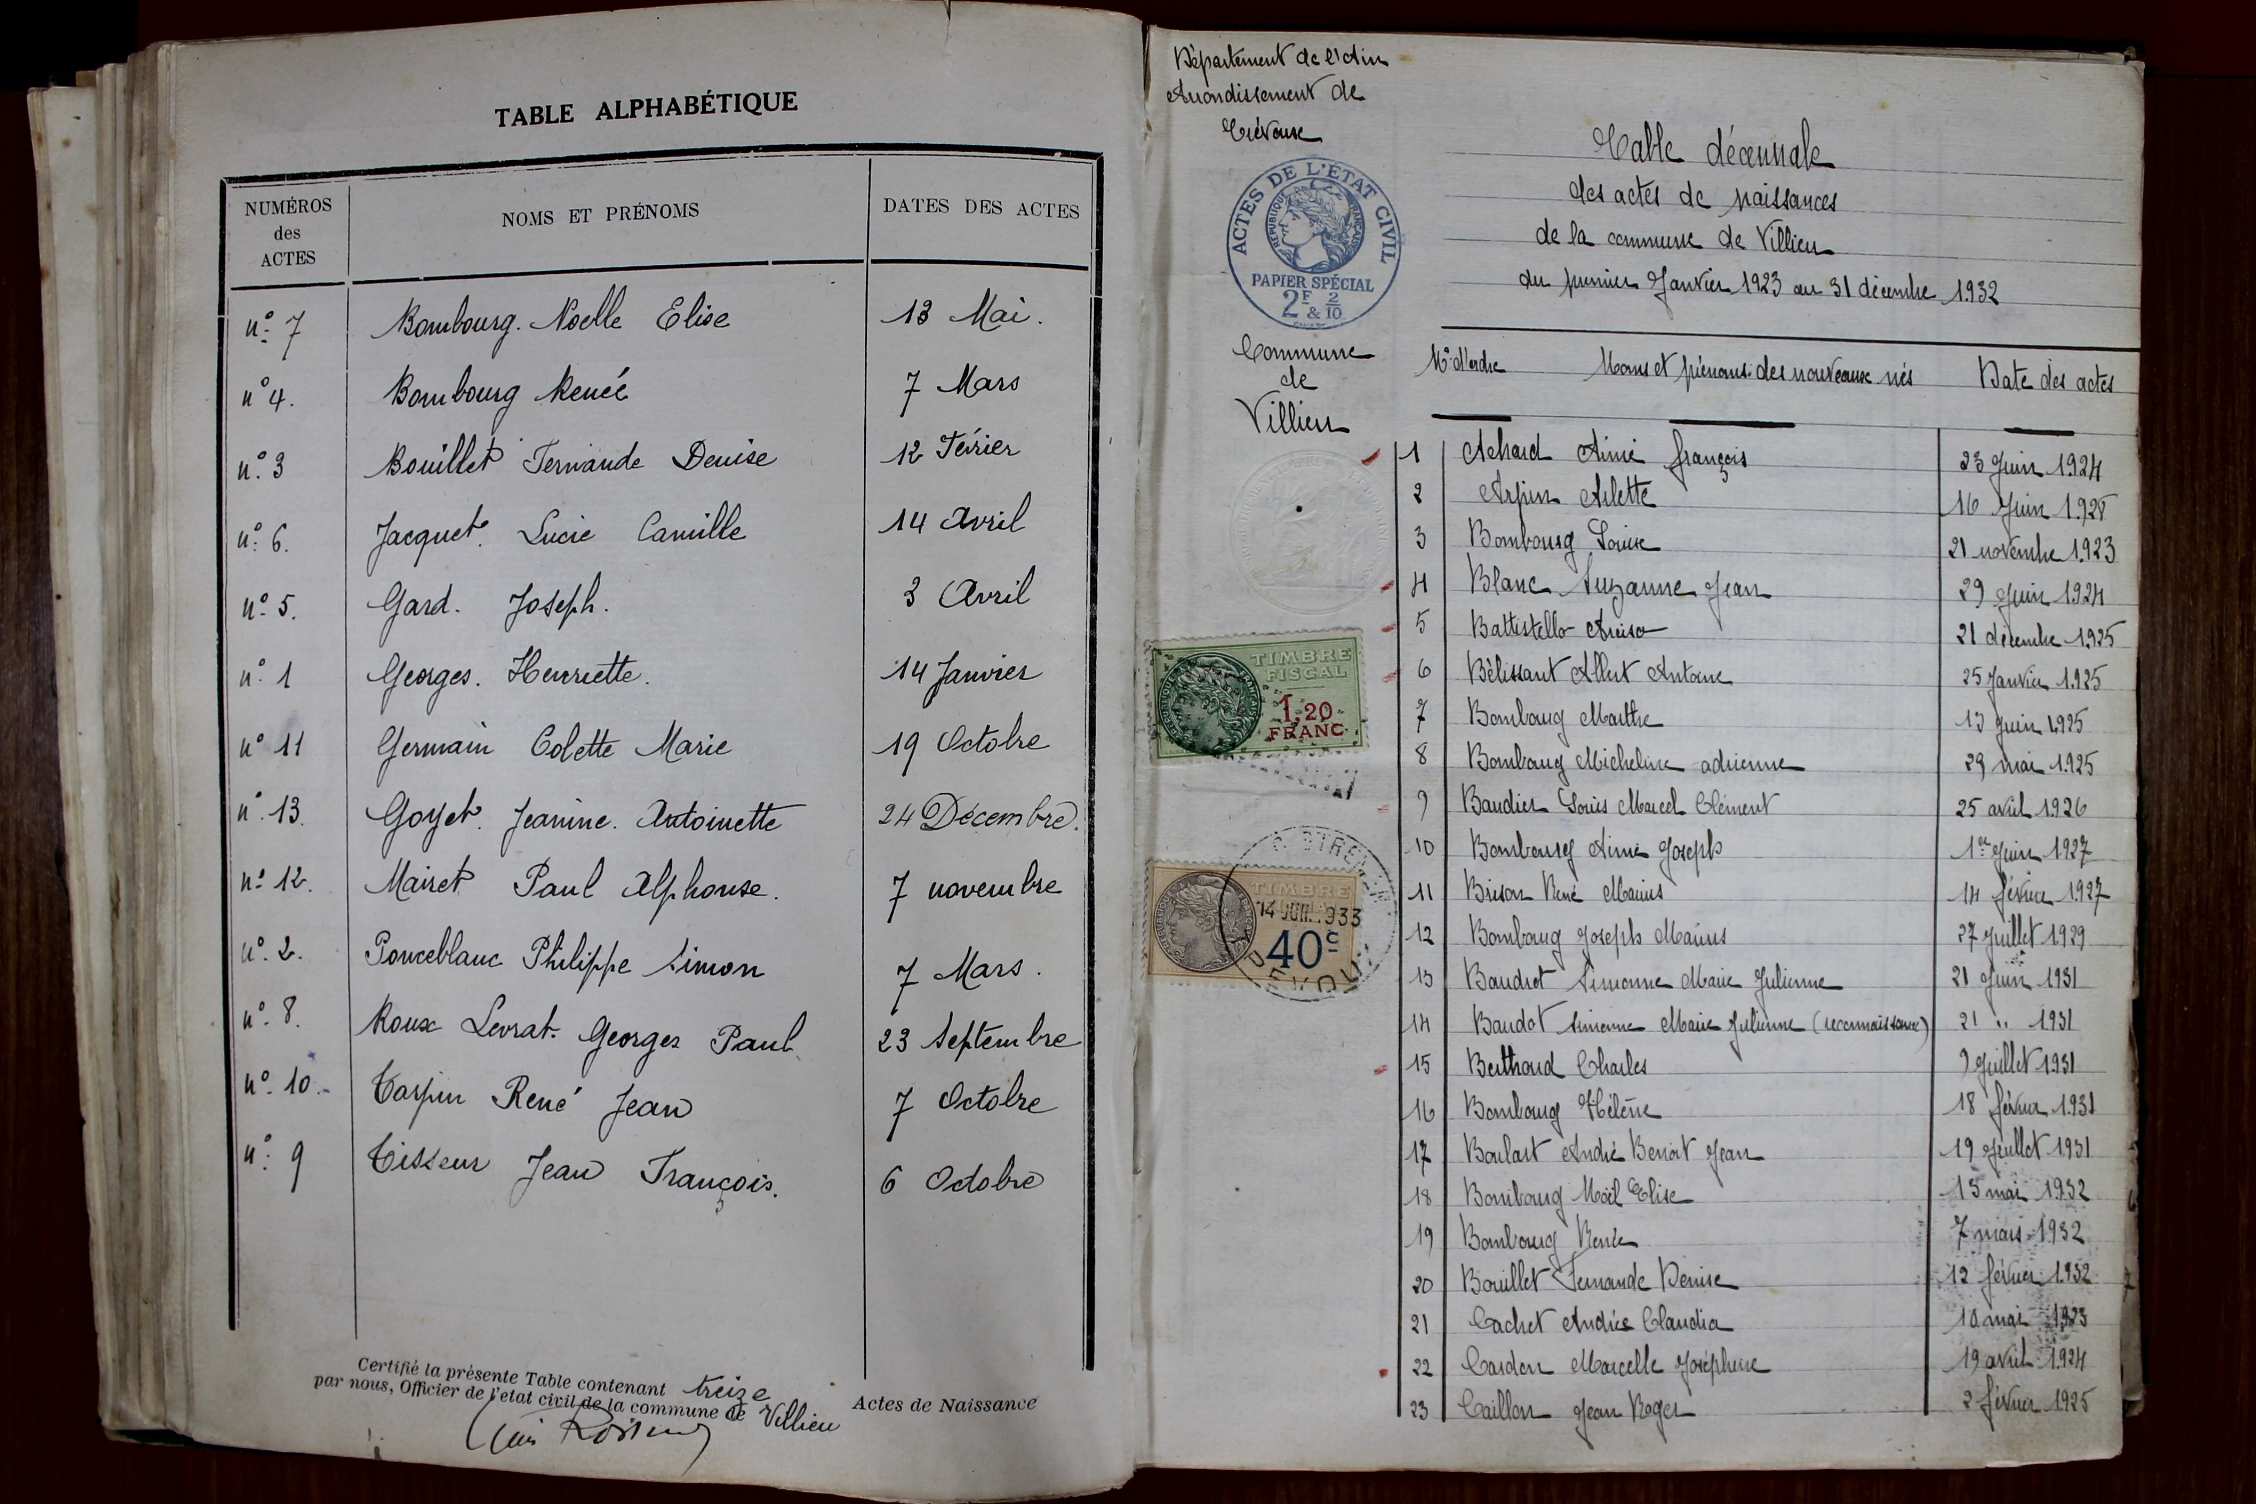 TABLE ALPHABÉTIQUE
NUMÉROS des ACTES NOMS ET PRÉNOMS DATES DES ACTES
nº 7 Bombourg. Noelle Elise 13 Mai.
nº 4. Bombourg Renée 7 Mars
nº 3 Bouillet Fernande Denise 12 Février
nº 6. Jacquet. Lucie Camille 14 Avril
nº 5. Gard. Joseph. 3 Avril
nº 1 Georges. Henriette. 14 Janvier
nº 11 Germain Colette Marie 19 Octobre
nº 13. Goyet. Jeanine. Antoinette 24 Décembre.
nº 12. Mairet Paul Alphonse. 7 novembre
nº 2. Ponceblanc Philippe Simon 7 Mars.
nº 8. Roux Levrat. Georges Paul 23 Septembre
nº 10.- Tarpin René Jean 7 Octobre
nº 9 Tisseur Jean François. 6 Octobre
Certifié la présente Table contenant treize Actes de Naissance
par nous, Officier de l'etat civil de la commune de Villieu
Département de l'Ain
Arrondissement de
Trévoux
ACTES DE L'ETAT CIVIL
REPUBLIQUE FRANÇAISE
PAPIER SPÉCIAL
2F & 2/10
Commune
de
Villieu
TIMBRE
FISCAL
1,20
FRANC
TIMBRE
14 JUIL 1933
40c
Table décennale
des actes de naissances
de la commune de Villieu
du premier Janvier 1923 au 31 décembre 1932
Nº d'ordre Noms et prénoms des nouveaux nés Date des actes
1 Achard Aimé françois 23 Juin 1924
2 Arpin Arlette 16 Juin 1928
3 Bombourg Louise 21 novembre 1923
4 Blanc Suzanne Jean 29 Juin 1924
5 Battistello 21 décembre 1925
6 Bélissant Albert Antoine 25 Janvier 1925
7 Bombourg Marthe 13 Juin 1925
8 Bombourg Micheline adrienne 29 mai 1925
9 Baudier Louis Marcel Clément 25 avril 1926
10 Bombourg Aimé Joseph 1er Juin 1927
11 Brison René Marius 14 février 1927
12 Bombourg Joseph Marius 27 Juillet 1929
13 Baudot Simonne Marie Julienne 21 Juin 1931
14 Baudot Simonne Marie Julienne (reconnaissance) 21 " 1931
15 Berthoud Charles 9 Juillet 1931
16 Bombourg Hélène 18 février 1931
17 Boulart André Benoit Jean 19 Juillet 1931
18 Bombourg Noël Elise 13 mai 1932
19 Bombourg Renée 7 mars 1932
20 Bouillet Fernande Denise 12 février 1932
21 Cachet Andrée Claudia 10 mai 1923
22 Cardon Marcelle Joséphine 19 avril 1924
23 Caillon Jean Roger 2 février 1925